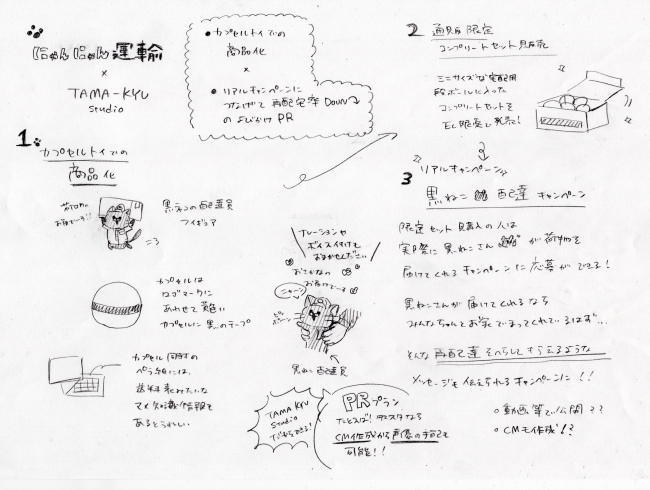 にゃんにゃん運輸
×
TAMA-KYU
studio
・カプセルトイでの
商品化
×
・リアルキャンペーンに
つなげて再配達率Down
のよびかけPR
1
カプセルトイでの
商品化
お届けでーす!!
黒ネコの配達員
フィギュア
カプセルは
ロゴマークに
あわせて
カプセルに黒のテープ
カプセル同封の
ペラ紙には、
送り状みたいな
マメ知識情報を
あるとうれしい
ナレーションや
ボイス付けも
おまかせください
おさかなの
お届けでーす
ニャーン
黒ねこ配達員
TAMA KYU
studio
だからできる!
PRプラン
たとえば!テスタなら
CM作成から声優の手配も
可能!!
2 通販限定
コンプリートセット販売
ミニサイズな宅配用
段ボールに入った
コンプリートセットを
EC限定で発売!
リアルキャンペーン
3
黒ねこ配達キャンペーン
限定セット購入の人は
実際に黒ねこさんが荷物を
届けてくれるキャンペーンに応募ができる!
黒ねこさんが届けてくれるなら
みんなちゃんとお家でまってくれているはず…
そんな再配達をへらしてもらえるような
メッセージも伝えられるキャンペーンに!!
○動画等で公開??
○CMも作成!?